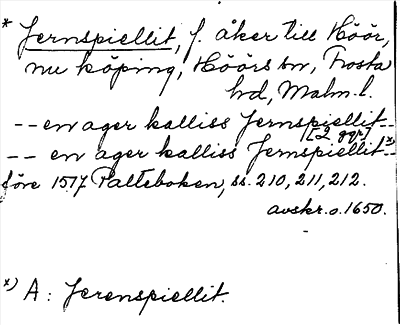 * Jernspiellit, f. åker till Höör,
nu köping, Höörs sn, Frosta
hd, Malm.l.
-- en ager kalliss Jernspiellit --
[2 ggr]
-- en ager kalliss Jernspiellit x) --
före 1517 Palteboken, ss. 210, 211, 212.
avskr. o. 1650.
x) A: Jerenspiellit.